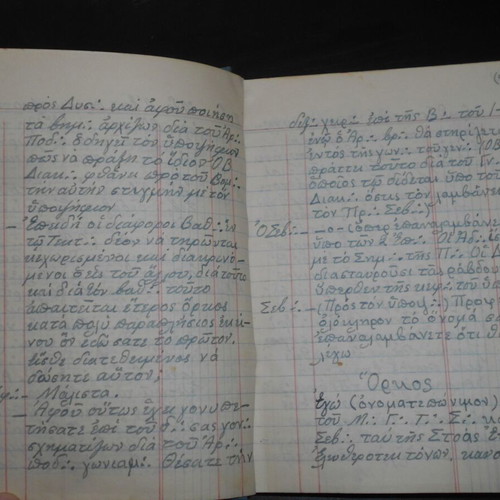 πρὸς Δυσ∴ καὶ ἀφοῦ ποιήσῃ
τὰ βημ∴ ἀρχίζων διὰ τοῦ Ἀρ∴
Ποδ∴ ὁδηγεῖ τὸν ὑποψήφιον
πως νὰ πράξῃ τὸ ἴδιον Ὁ Β
Διακ∴ φθάνει πρὸ τοῦ Βωμ∴
τὴν αὐτὴν στιγμὴν μὲ τὸν
ὑποψήφιον
– Ἐπειδὴ οἱ διάφοροι Βαθ∴ ἐν
τῷ Τεκτ∴ δέον νὰ τηρῶνται
κεχωρισμένοι καὶ διακεκρι
μένοι ὁ εἷς τοῦ ἄλλου, διὰ τοῦτο
καὶ διὰ τὸν βαθ∴ τοῦτο
ἀπαιτεῖται ἕτερος ὅρκος
κατὰ πολὺ παραπλήσιος ἐκεί
νου ὃν ἐδώσατε τὸ πρῶτον.
Εἶσθε διατεθειμένος νὰ
δώσητε αὐτόν;
– Μάλιστα.
– Ἀφοῦ οὕτως ἔχει γονυπε
τήσατε ἐπὶ τοῦ δ∴ σας γον∴
σχηματίζων διὰ τοῦ Ἀρ∴
ποδ∴ γωνίαμ∴ Θέσατε τὴν
δεξ∴ χεῖρ∴ ἐπὶ τῆς Β∴ τοῦ
ἐνῷ ὁ Ἀρ∴ βρ∴ θὰ στηρίζετ
ἐντὸς τῆς γων∴ τοῦ γεν∴ (Ὁ Β
πράττει τοῦτο διὰ τοῦ Γν
ὁποῖος τῷ δίδεται ὑπὸ τοῦ
Διακ∴ ὅστις τὸν λαμβάνει
τὸν Πρ∴ Σεβ∴)
Ὁ Σεβ∴ – – ο – (ὅπερ ἐπαναλαμβάν
ὑπὸ τῶν 2 Ἐπ∴ Οἱ Ἀδ
μὲ τὸ Σημ∴ τῆς Π∴ Οἱ Δ
διασταυροῦσι τὰς ῥάβδου
ὕπερθεν τῆς κεφ∴ τοῦ ὑπ
Σεβ∴ – (Πρὸς τὸν ὑποψ∴) Προφ
ὁλόκληρον τὸ ὄνομά σα
ἐπαναλαμβάνετε ὅτι θ
λέχω
Ὅρκος
Ἐγώ (ὀνοματεπώνυμον)
τοῦ Μ∴ Γ∴ Τ∴ Σ∴ κα
Σεβ∴ ταύτης Στοᾶς Ἐ
ἐλευθεροτεκτόνων, κανο